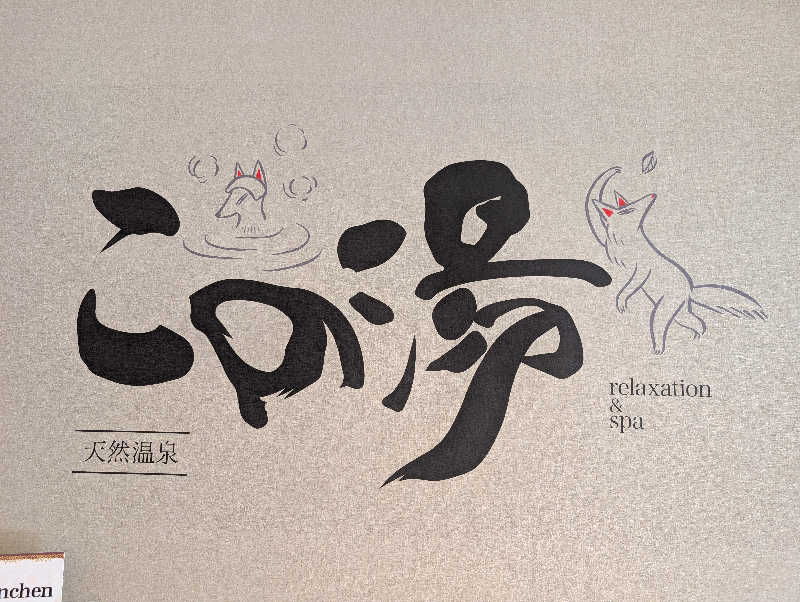 この湯
天然温泉
relaxation
&
spa
nchen